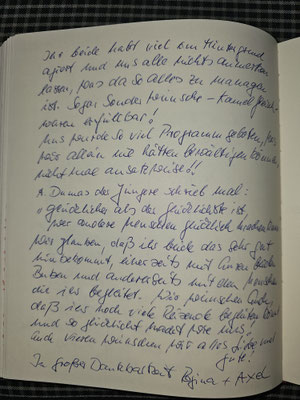 Ihr beide habt viel im Hintergrund
agiert und uns alle nicht anmerken
lassen, was da so alles zu managen
ist. Sogar Sonderwünsche - Kamel
erfüllbar!
Uns wurde so viel Programm geboten, das
wir allein nie hätten bewältigen können
nicht mal ansatzweise!!
A. Dumas der Jüngere schrieb mal:
"glücklicher als der Glücklichste ist,
wer andere Menschen glücklich machen kann
Wir glauben, daß ihr beide das sehr gut
hinbekommt, einerseits mit Euren
und andererseits mit den Menschen
die ihr begleitet. Wir wünschen Euch,
daß ihr noch viele Reisende begleiten könnt
und so glücklich macht wie uns,
Euch Vieren wünschen wir alles Liebe und
Gute!
In großer Dankbarkeit Regina + Axel